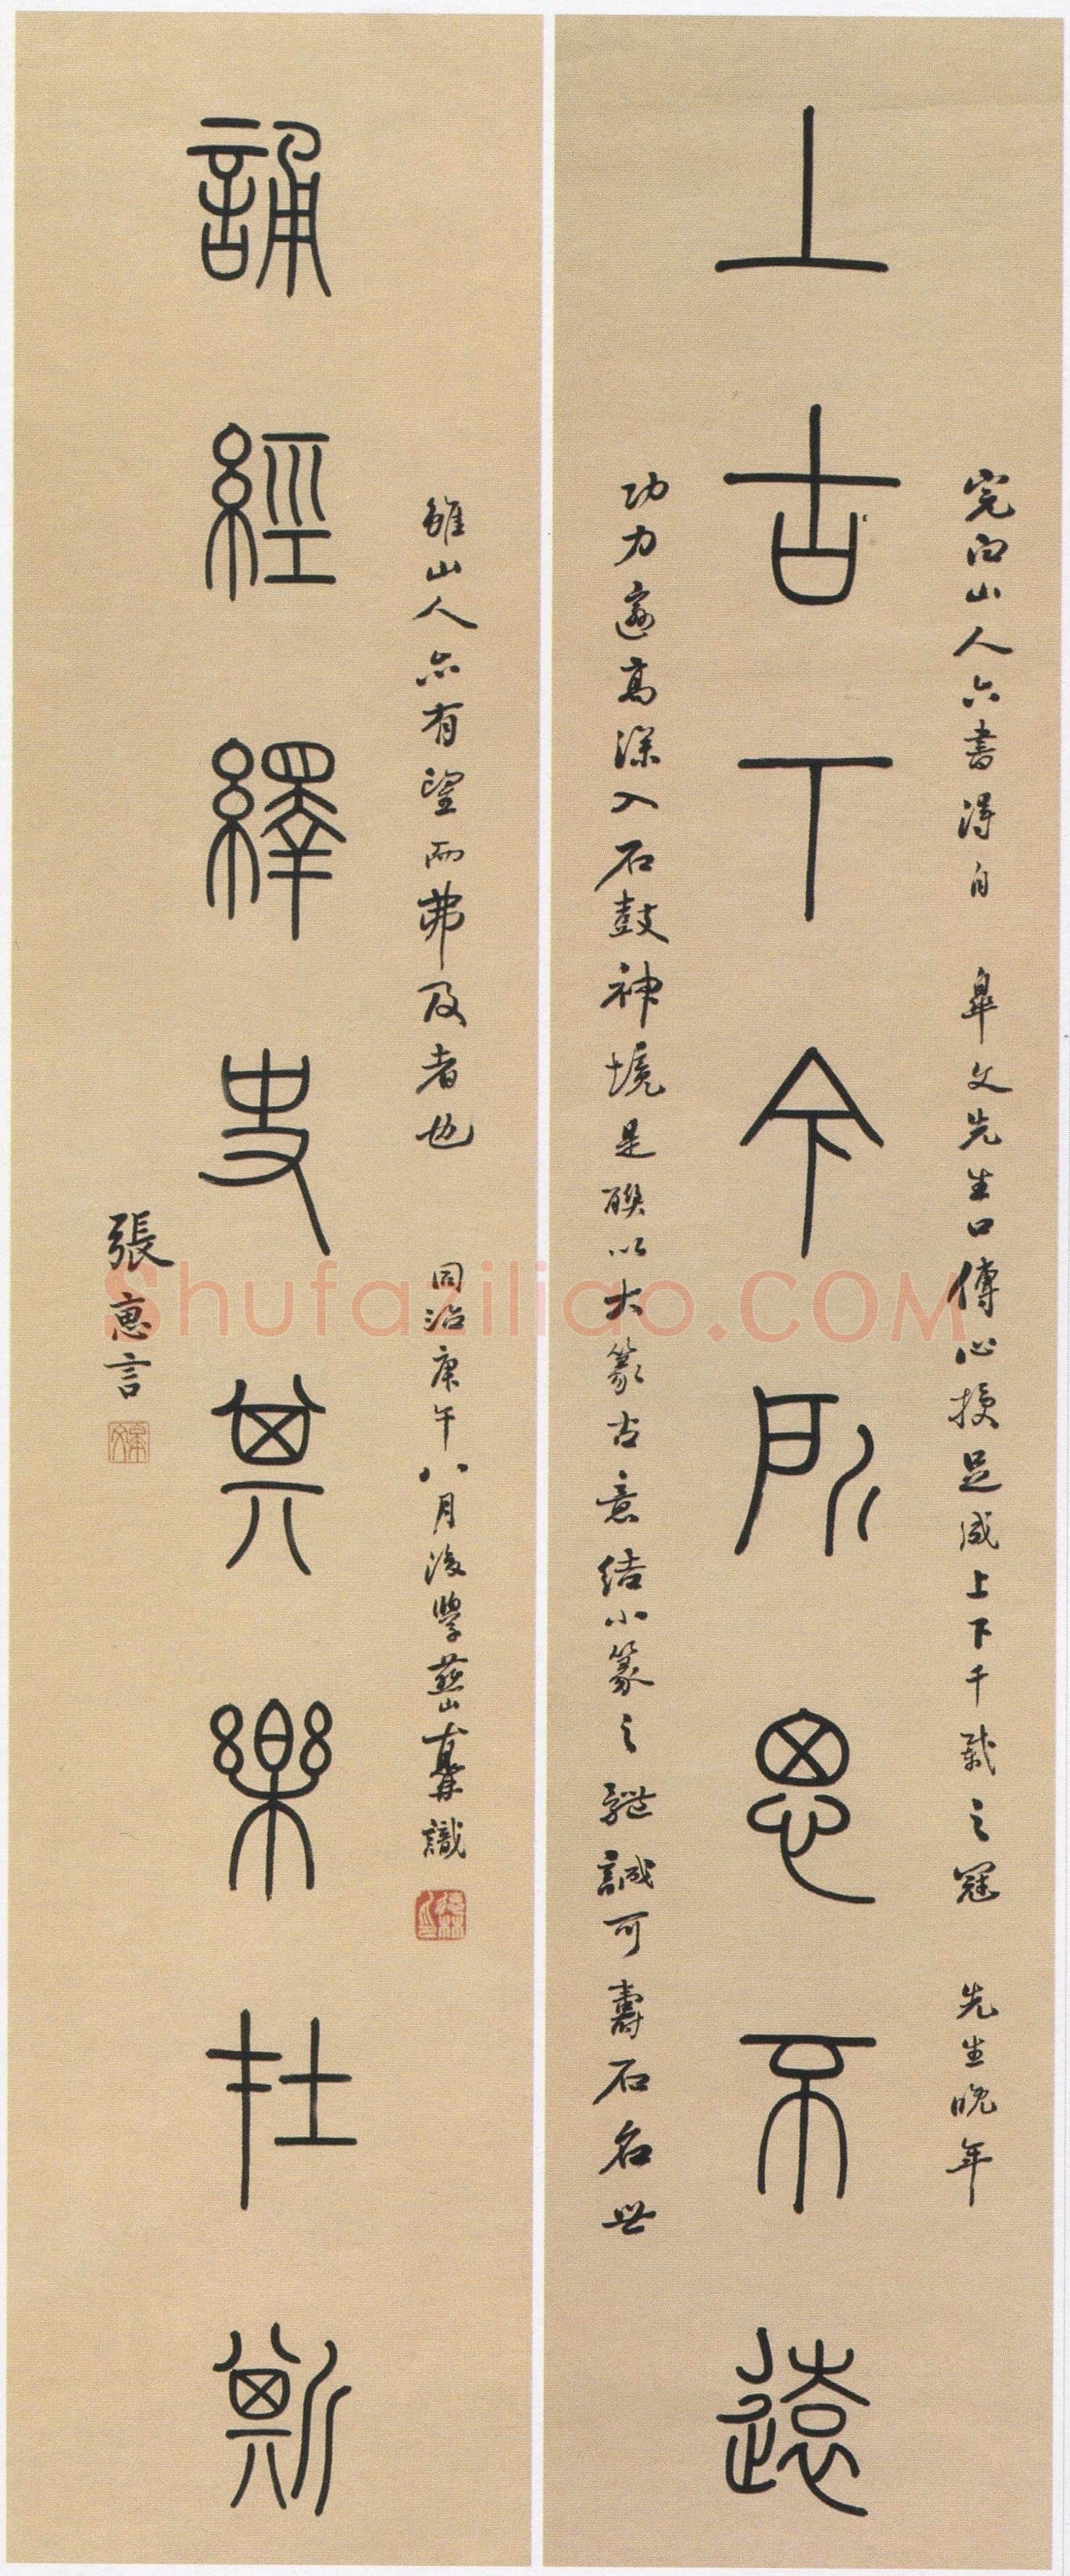 完白山人六書得自　皋文先生口傳心授足成上下千載之冠　先生晚年
上古下今所思不遠
功力邃高深入石鼓神境是聯以大篆古意結小篆之體誠可壽石名世
雖山人亦有望而弗及者也　同治庚午八月後學 識
誦經繹史其樂在斯
張惠言
Shufaziliao.COM